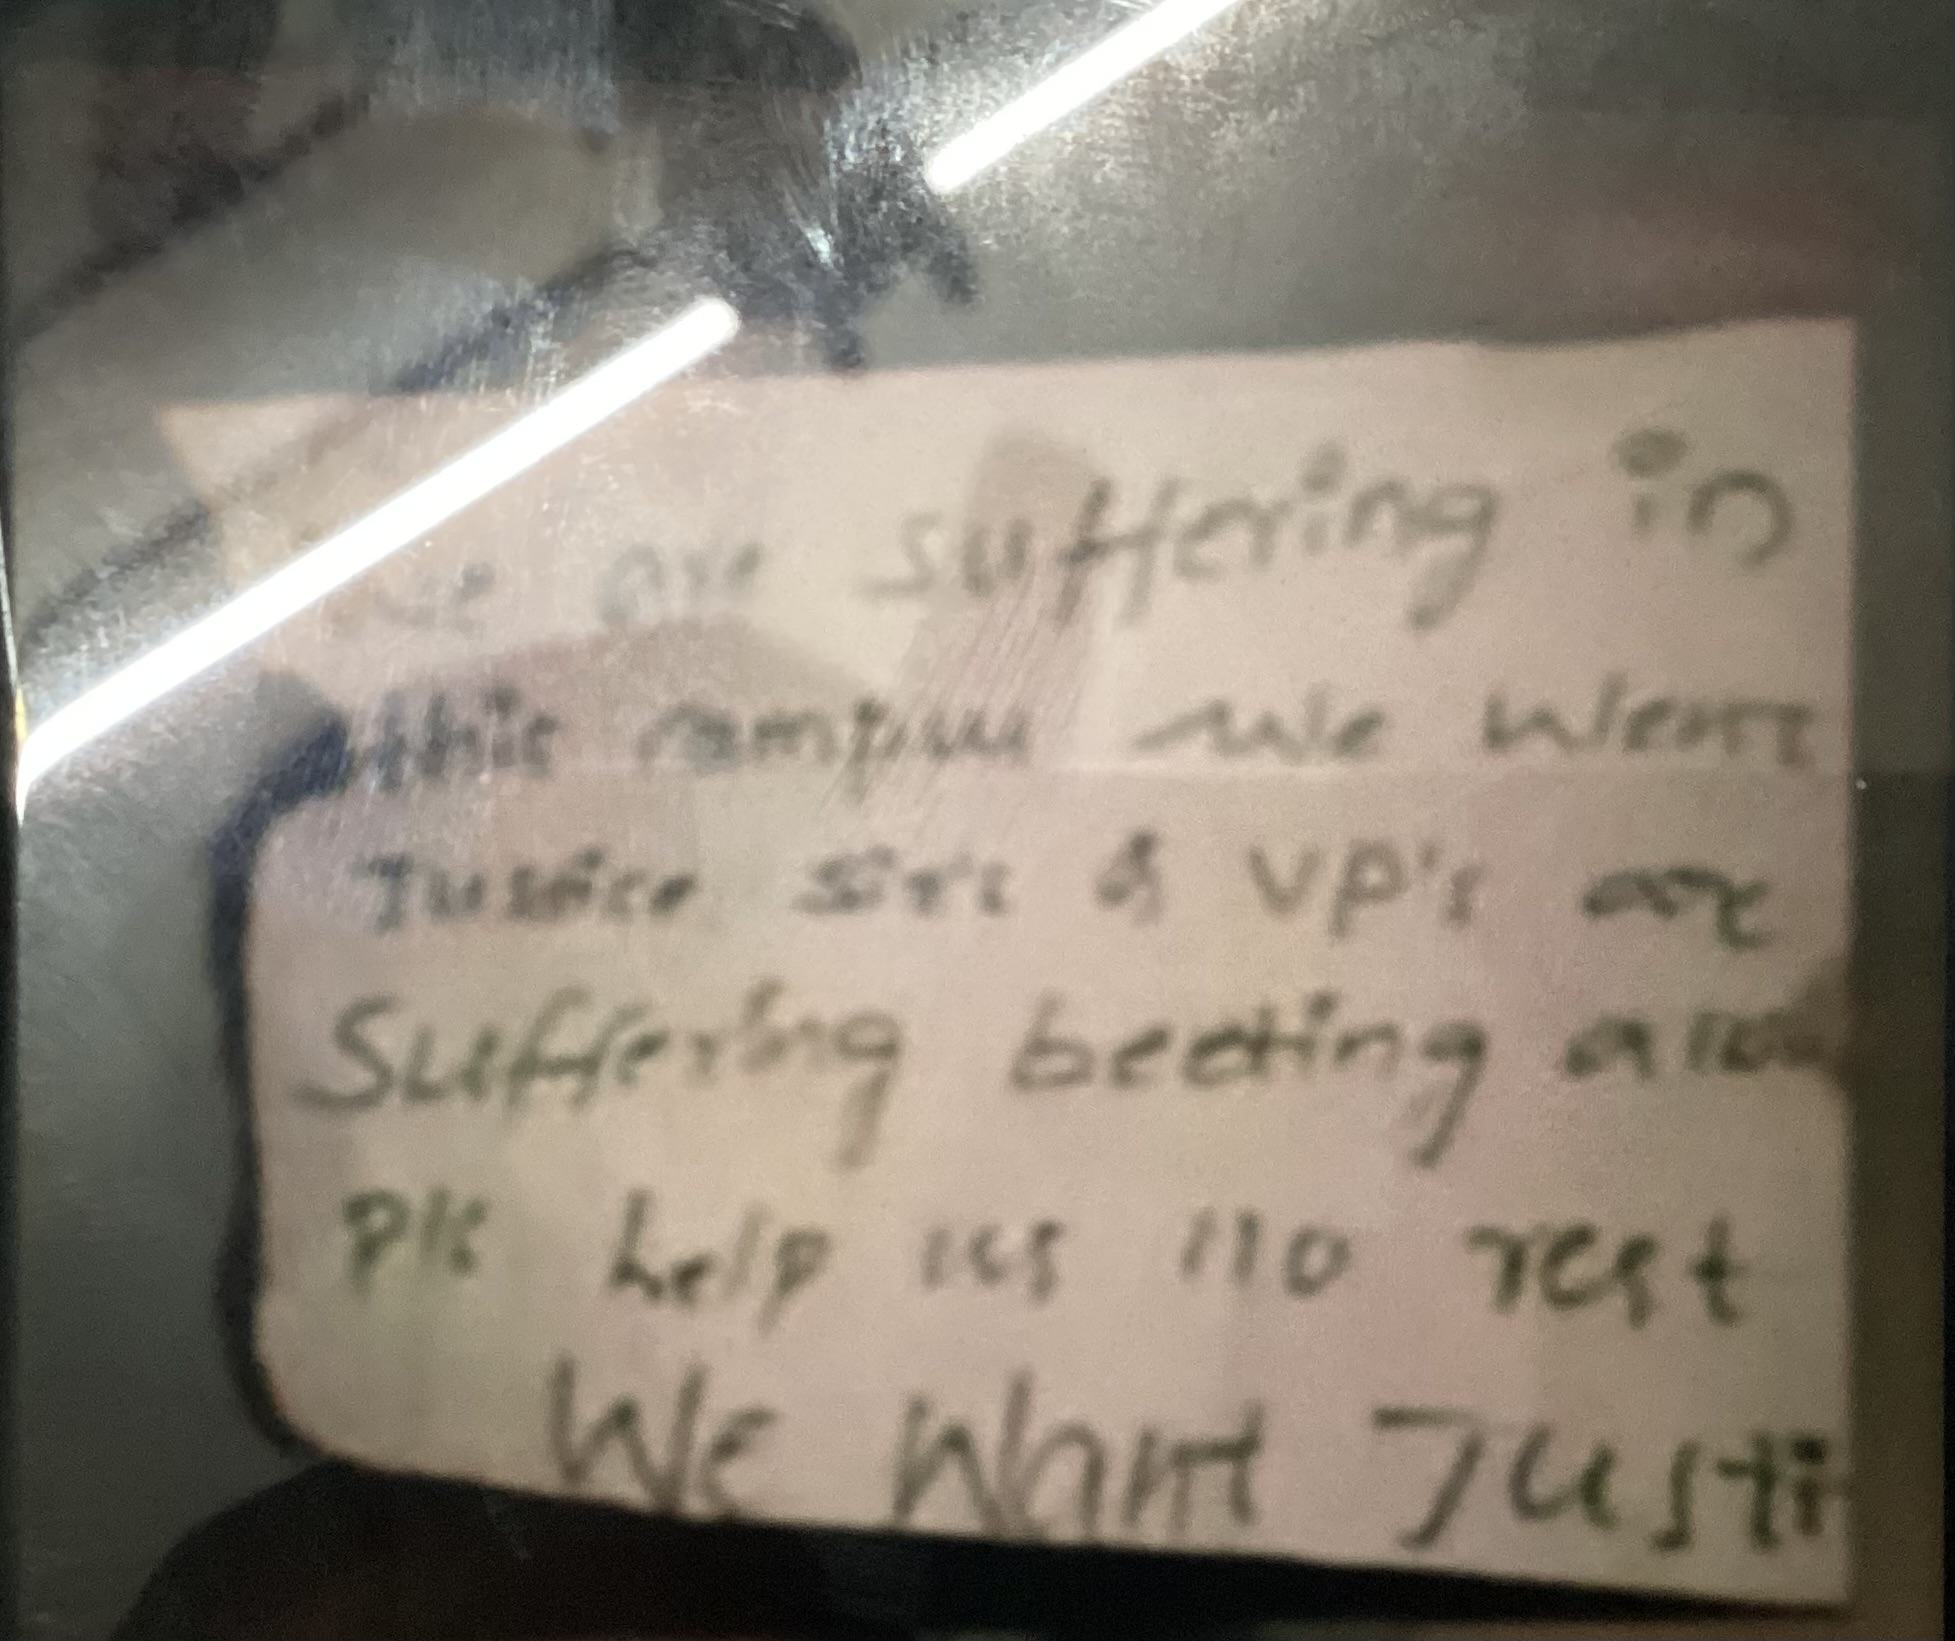 We are suffering in
this we want
Justice sir's & VP's are
Suffering beeting
Pls help us no rest
We Want Justi